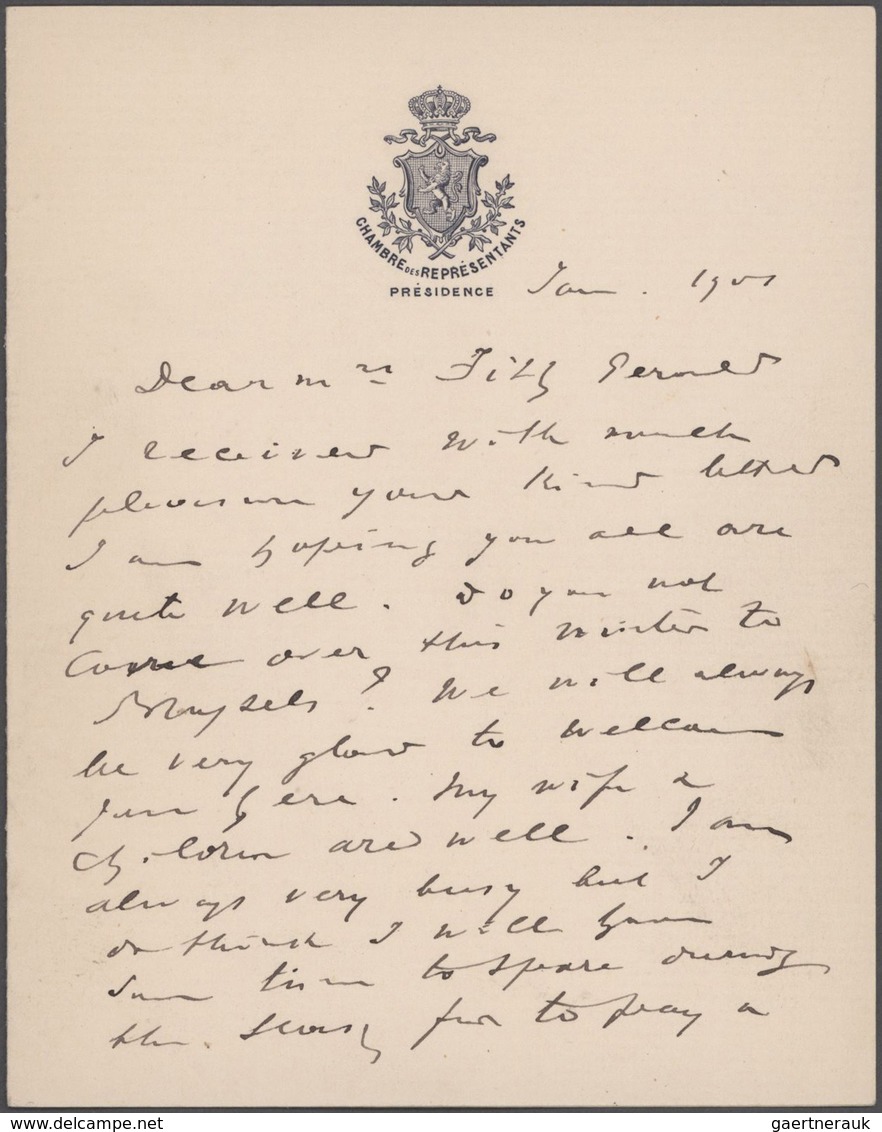 CHAMBRE DES REPRÉSENTANTS
PRÉSIDENCE
Jan. 1901
Dear Mrs Fitz Gerald
I received with much
pleasure your kind letter
I am hoping you all are
quite well. Do you not
come over this winter to
Brussels? We will always
be very glad to welcome
you here. My wife &
children are well. I am
always very busy but I
do think I will have
some time to spare during
the for to pay a
delcampe.net
gaertnerauk